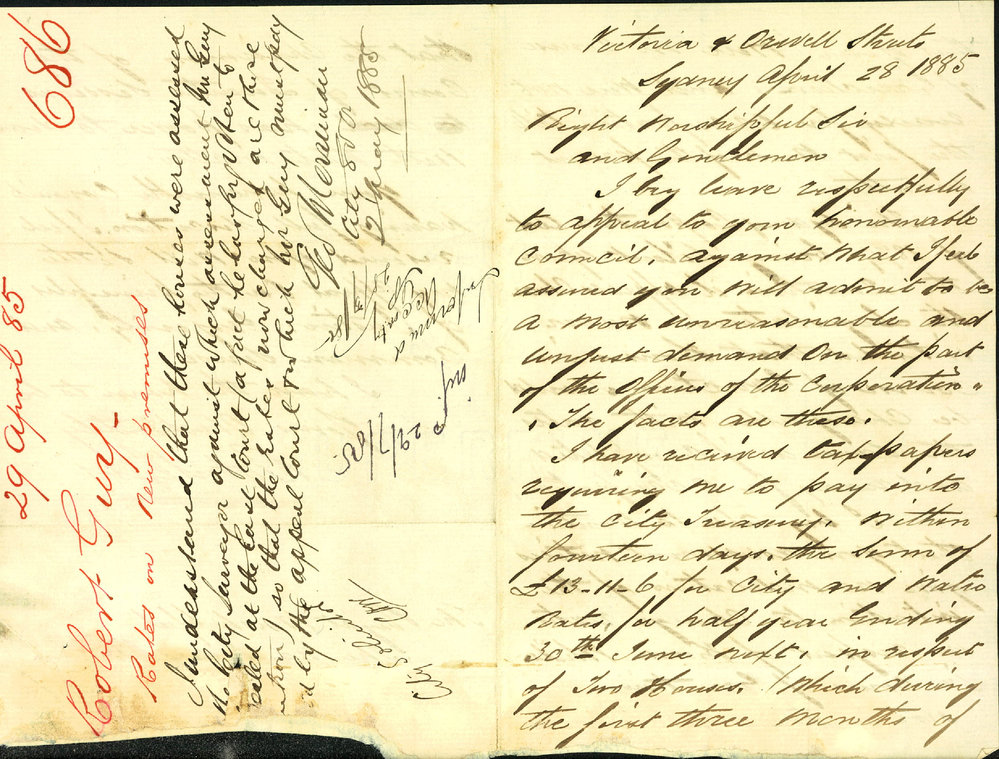 686
29 April 85
Robert Guy
Rates on New premises
I understand that these houses were assessed
by the City Surveyor against which assessment Mr Guy
appealed at the Appeal Court
so that the Rates now charged are those
by the appeal Court for which Mr Guy must pay
Geo Merriman
City Sol
2 May 1885
Informed
29/7/85
City Solicitor
Victoria & Orwell Streets
Sydney April 28 1885
Right Worshipful Sir
and Gentlemen
I beg leave respectfully
to appeal to your honourable
Council, against what I feel
assured you will admit to be
a most unreasonable and
unjust demand on the part
of the Officers of the Corporation.
The facts are these.
I have recieved tax papers
requiring me to pay into
the City Treasury, within
fourteen days, the sum of
£13-11-6 for City and Water
Rates, for half year Ending
30th June next, in respect
of Two Houses. (Which during
the first three months of